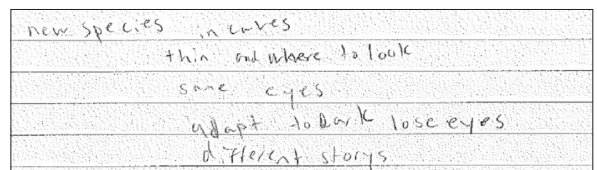 new species in caves
thin and where to look
same eyes
adapt to Dark lose eyes
different storys